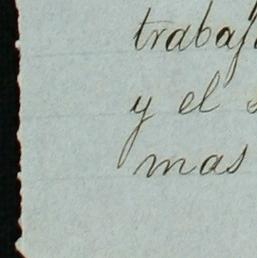 trabaj
y el
mas